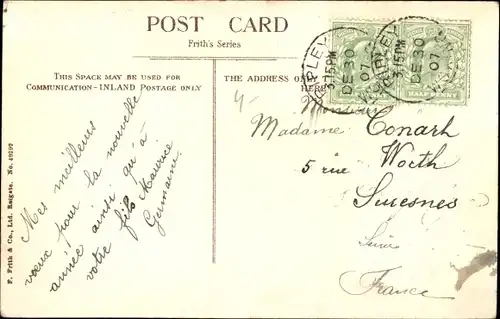 POST CARD
Frith's Series
THIS SPACE MAY BE USED FOR
COMMUNICATION - INLAND POSTAGE ONLY
THE ADDRESS ONLY
HERE
3.15PM
DE 30
07
3.15PM
DE 30
07
HALF PENNY
4-
Monsieur
Madame Conarh
5 rue Worth
Suresnes
Seine
France
Mes meilleurs
voeux pour la nouvelle
année ainsi qu'à
votre fils Maurice
Germaine
F. Frith & Co., Ltd. Reigate. No. 49292